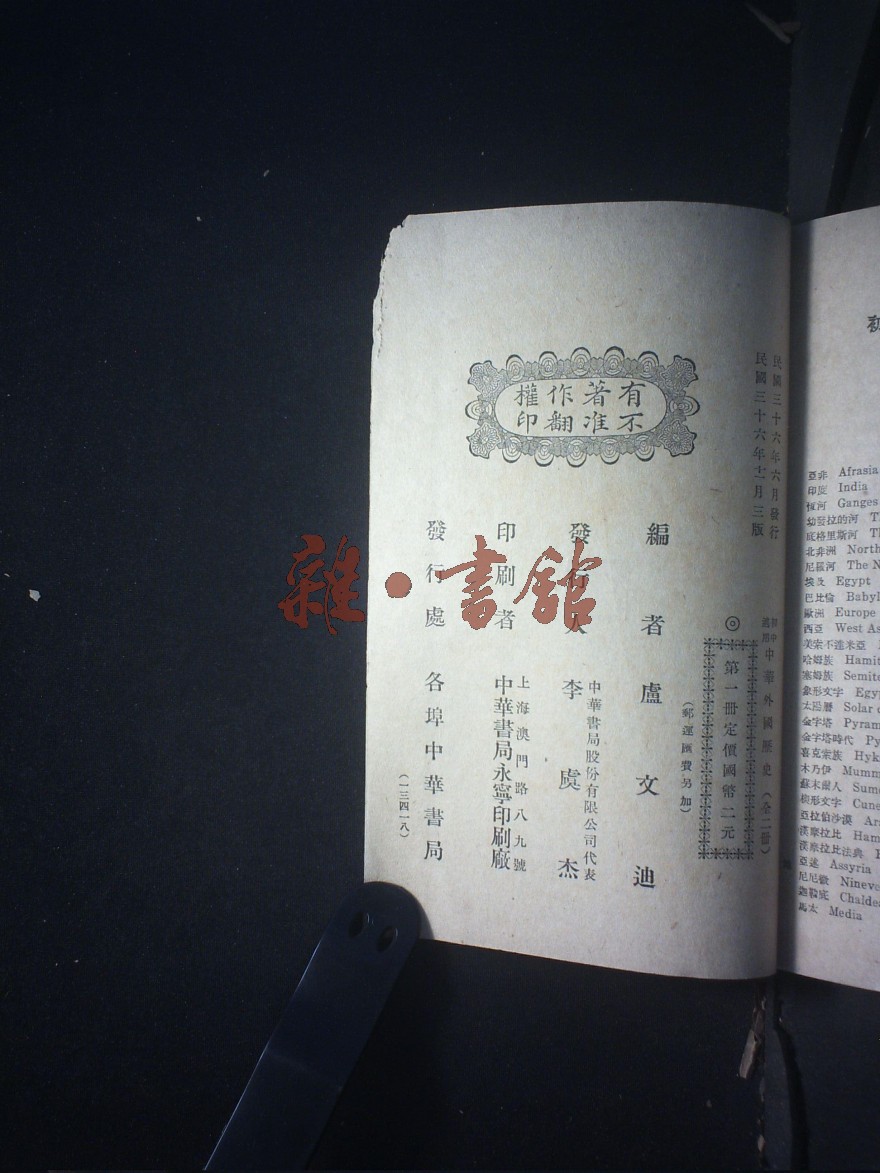 民國三十六年六月發行
民國三十六年十一月三版
初中適用 中華外國歷史（全二冊）
◎第一冊定價國幣二元
（郵運匯費另加）
有著作權
不准翻印
編者 盧文迪
發行人 李虞杰
中華書局股份有限公司代表
印刷者 中華書局永寧印刷廠
上海澳門路八九號
發行處 各埠中華書局
（一三四一八）
雜·書館
亞非 Afrasia
印度 India
恆河 Ganges
幼發拉的河
底格里斯河
北非洲 North
尼羅河 The N
埃及 Egypt
巴比倫 Babyl
歐洲 Europe
西亞 West As
美索不達米亞
哈姆族 Hamit
塞姆族 Semite
象形文字 Egy
太陽曆 Solar
金字塔 Pyram
金字塔時代 Py
喜克索族 Hyk
木乃伊 Mumm
蘇末爾人 Sume
楔形文字 Cune
亞拉伯沙漠 Ar
漢摩拉比 Ham
漢摩拉比法典
亞述 Assyria
尼尼微 Nineve
迦勒底 Chalde
馬太 Media